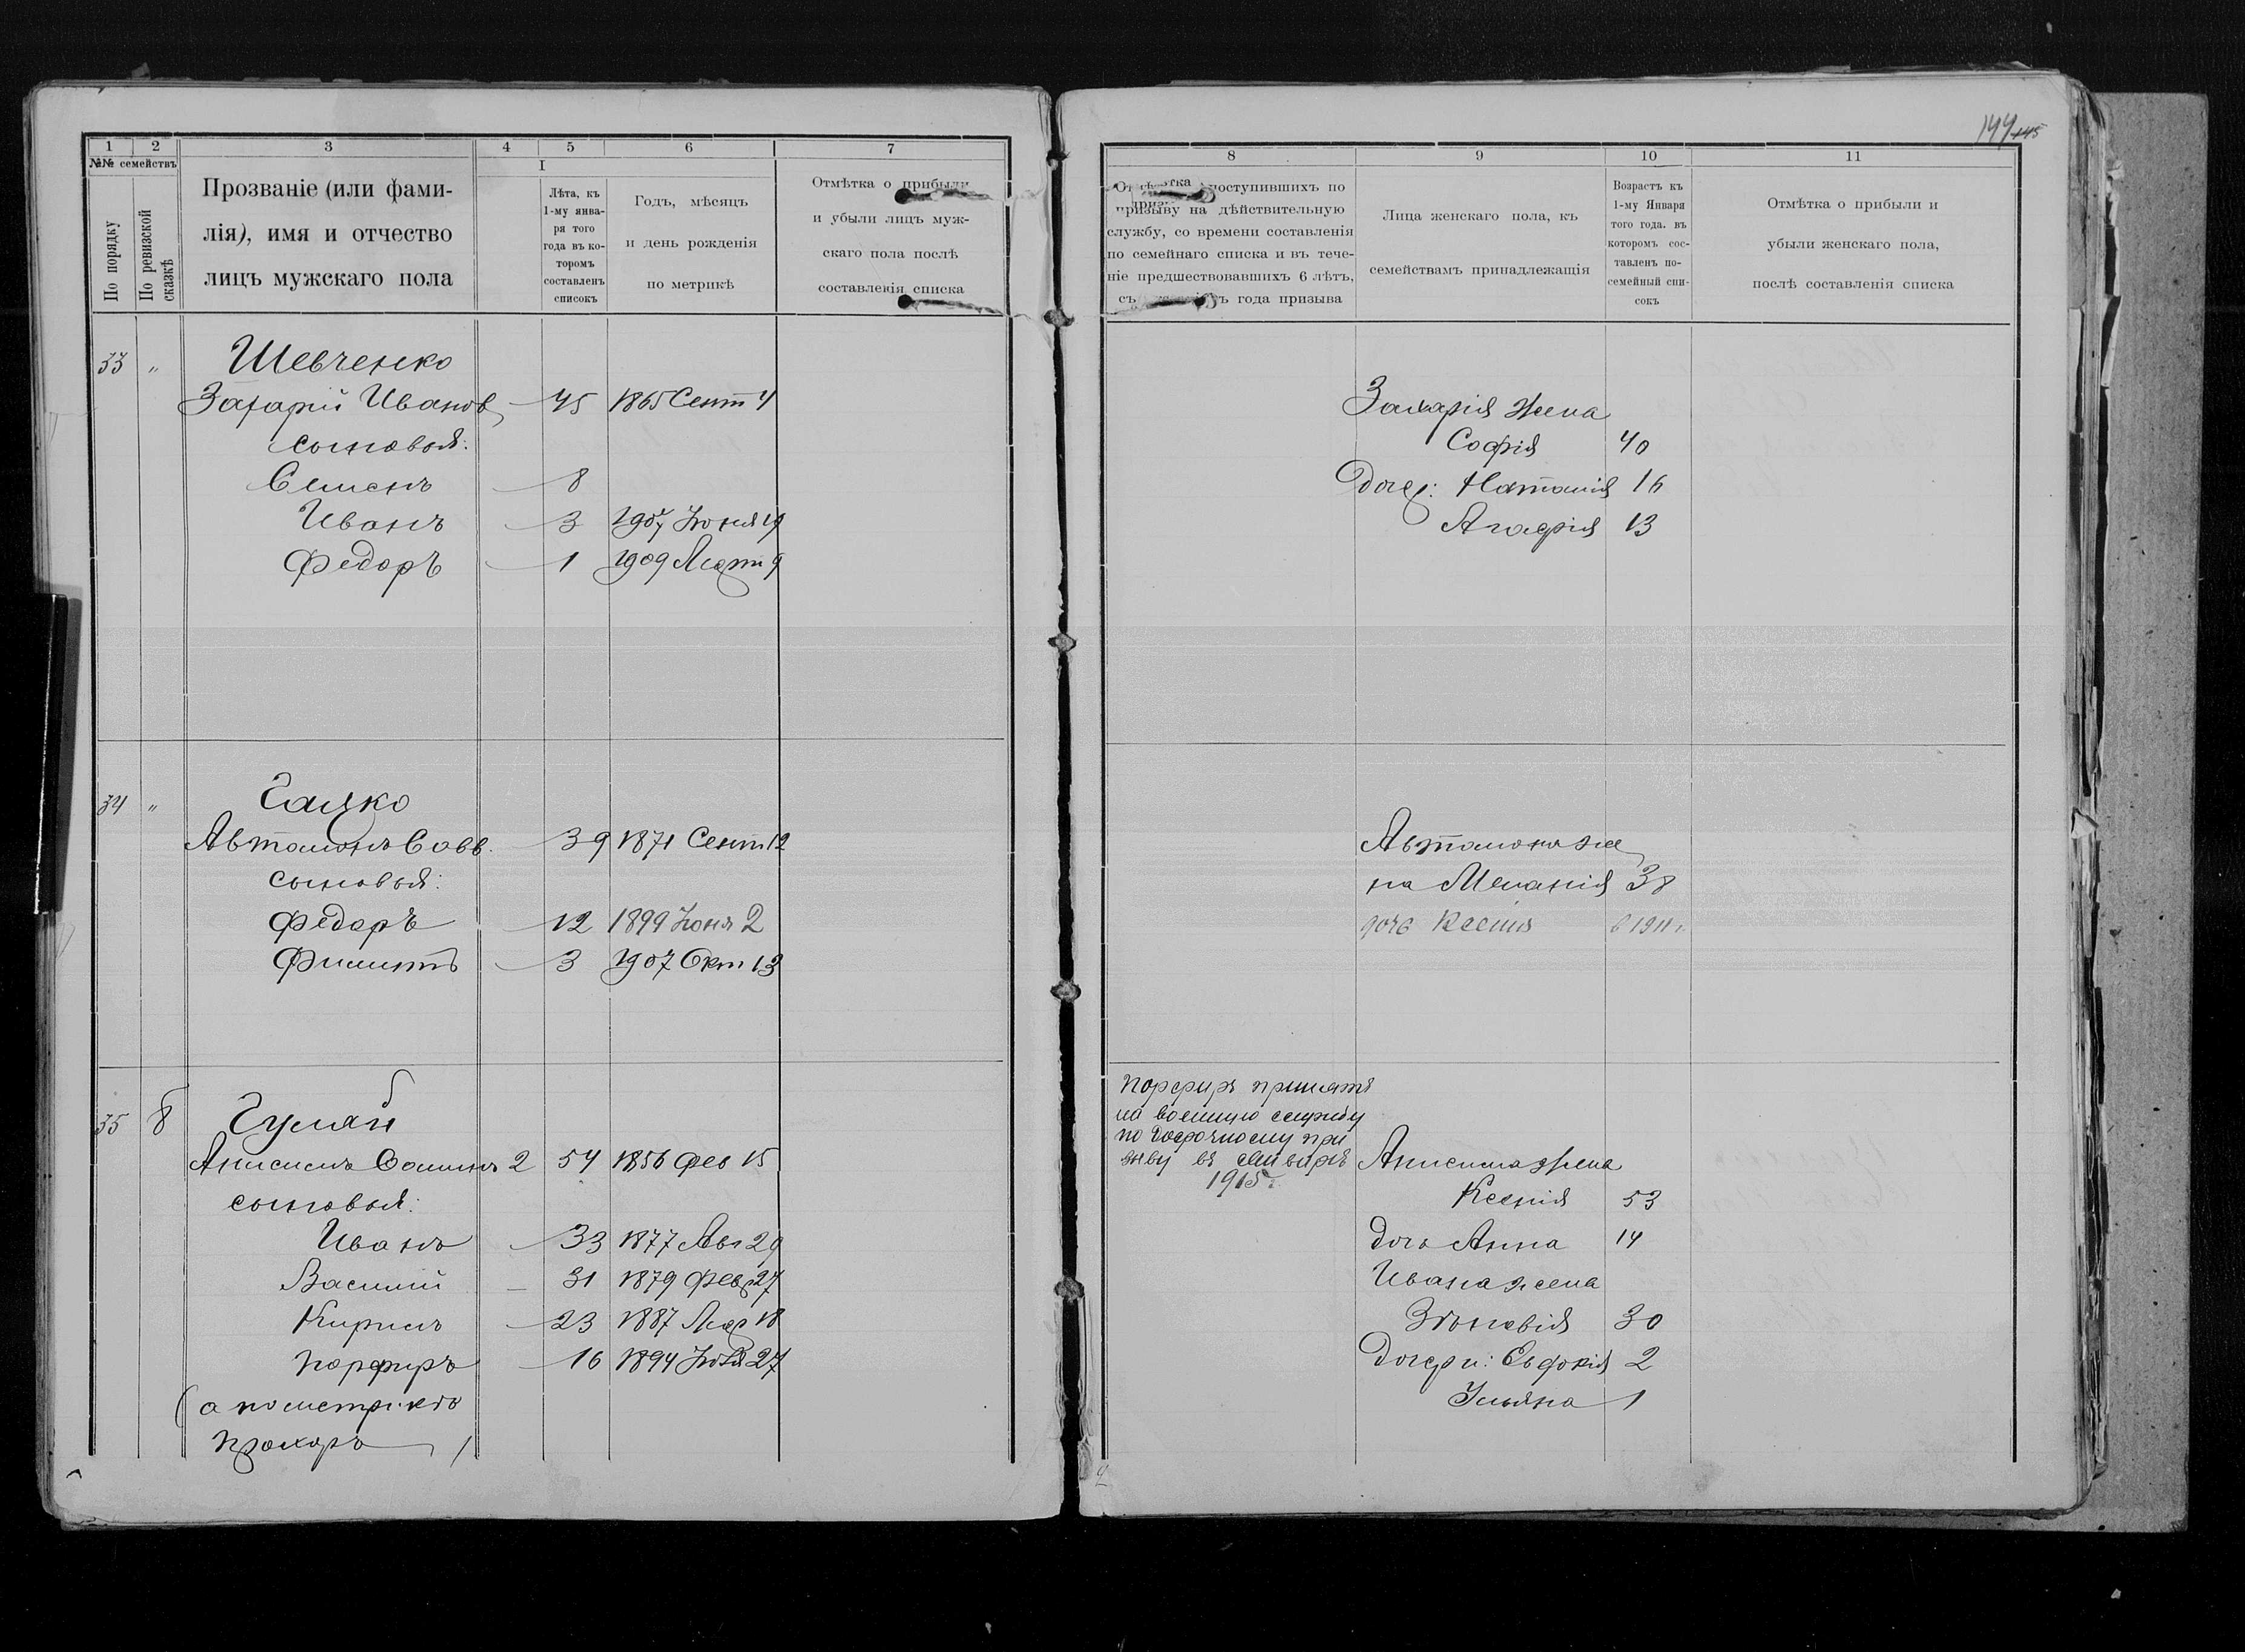 144 145
1 2 3 4 5 6 7
№№ семействъ
По порядку
По ревизской сказкѣ
Прозваніе (или фами-
лія), имя и отчество
лицъ мужскаго пола
I
Лѣта, къ
1-му янва-
ря того
года въ ко-
торомъ
составленъ
списокъ
Годъ, мѣсяцъ
и день рожденія
по метрикѣ
Отмѣтка о прибыли
и убыли лицъ муж-
скаго пола послѣ
составленія списка
33 " Шевченко
Захарій Иванов 45 1865 Сент 4
сыновья:
Семенъ 8
Иванъ 3 1907 Іюня 19
Федоръ 1 1909 Март 9
34 "
Автомонъ Савв. 39 1871 Сент 12
сыновья:
Федоръ 12 1899 Іюня 2
Филиппъ 3 1907 Окт 13
35 8 Гулай
Анисимъ 2 54 1856 Фев 15
сыновья:
Иванъ 33 1877 Авг 29
Василий 31 1879 Февр 27
Кирилъ 23 1887 Мар 18
Порфиръ 16 1894 27
(а по метрикѣ
Прохоръ)
8 9 10 11
поступившихъ по
призыву на дѣйствительную
службу, со времени составленія
по семейнаго списка и въ тече-
ніе предшествовавшихъ 6 лѣтъ,
съ года призыва
Лица женскаго пола, къ
семействамъ принадлежащія
Возрастъ къ
1-му Января
того года. въ
которомъ сос-
тавленъ по-
семейный спи-
сокъ
Отмѣтка о прибыли и
убыли женскаго пола,
послѣ составленія списка
Захарія жена
Софія 40
Дочер: Наталія 16
Агафія 13
Автомона же
на Меланія 38
дочь Ксенія 1911 г.
Порфиръ принятъ
на военную службу
по досрочному при
зыву въ январѣ
1915 г.
Анисима жена
Ксенія 53
дочь Анна 14
Ивана жена
Зѣновія 30
Дочери: Евдокія 2
Ульяна 1